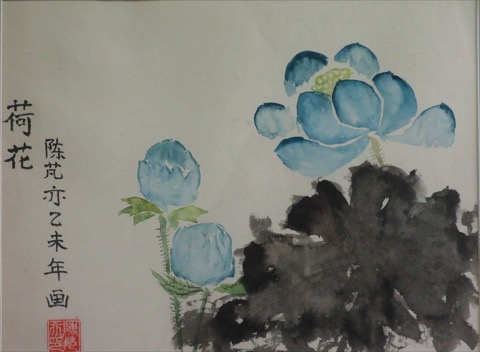 荷花
陈芃亦乙未年画